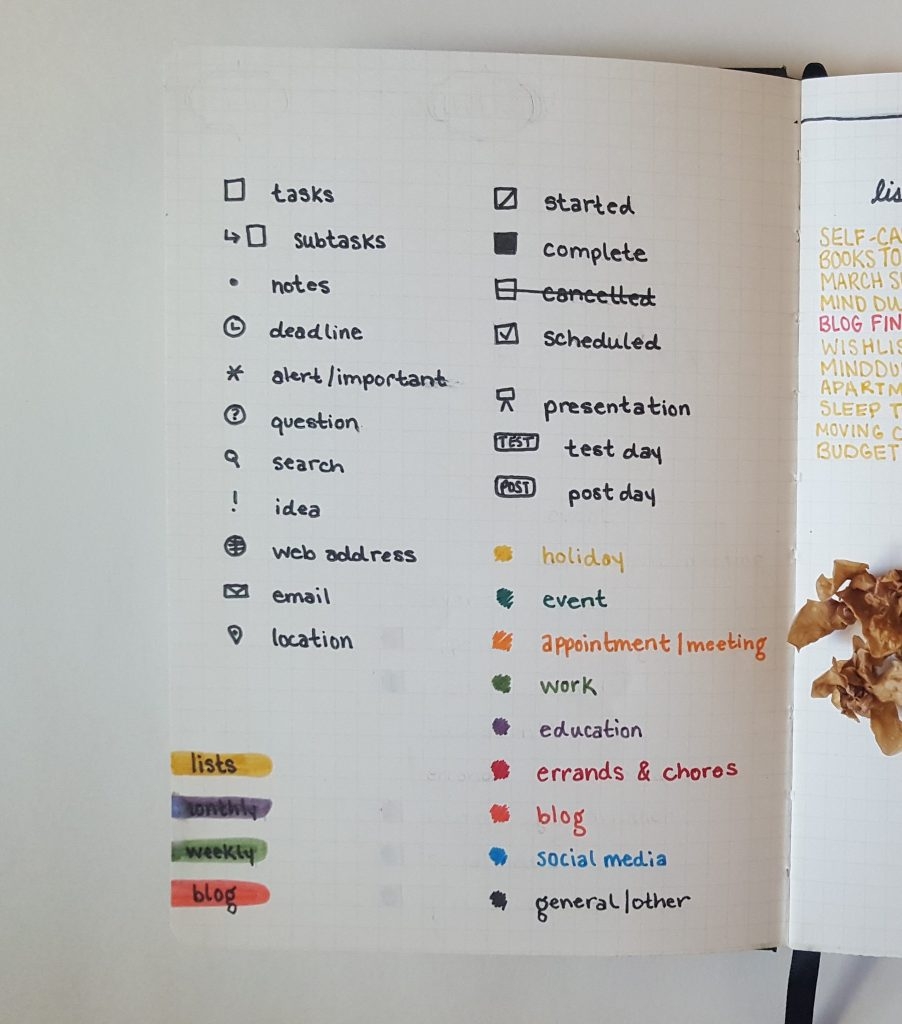 tasks
subtasks
notes
deadline
alert/important
question
search
idea
web address
email
location
lists
monthly
weekly
blog
started
complete
cancelled
scheduled
presentation
TEST test day
POST post day
holiday
event
appointment/meeting
work
education
errands & chores
blog
social media
general/other
BOOKS TO
MARCH
MIND
BLOG
SLEEP
MOVING
BUDGET